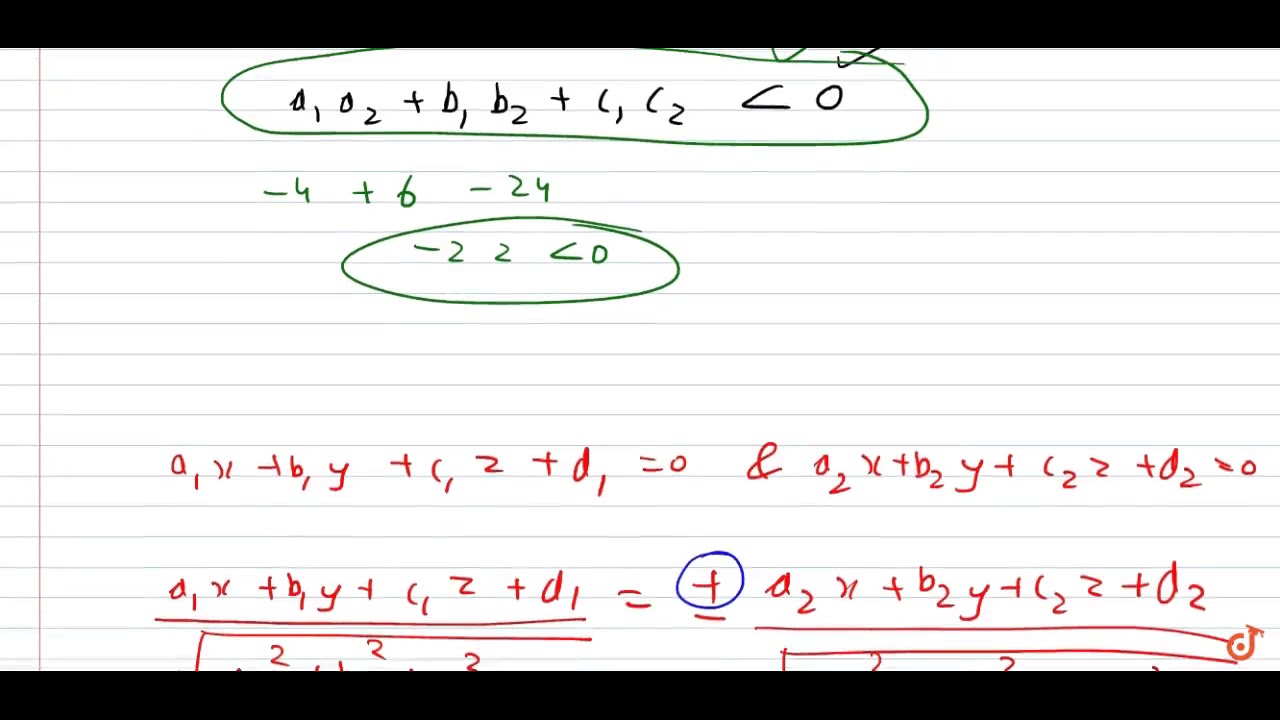 a₁a₂ + b₁b₂ + c₁c₂ < 0
-4 + 6 - 24
-22 < 0
a₁x + b₁y + c₁z + d₁ = 0 & a₂x + b₂y + c₂z + d₂ = 0
a₁x + b₁y + c₁z + d₁ = ± a₂x + b₂y + c₂z + d₂